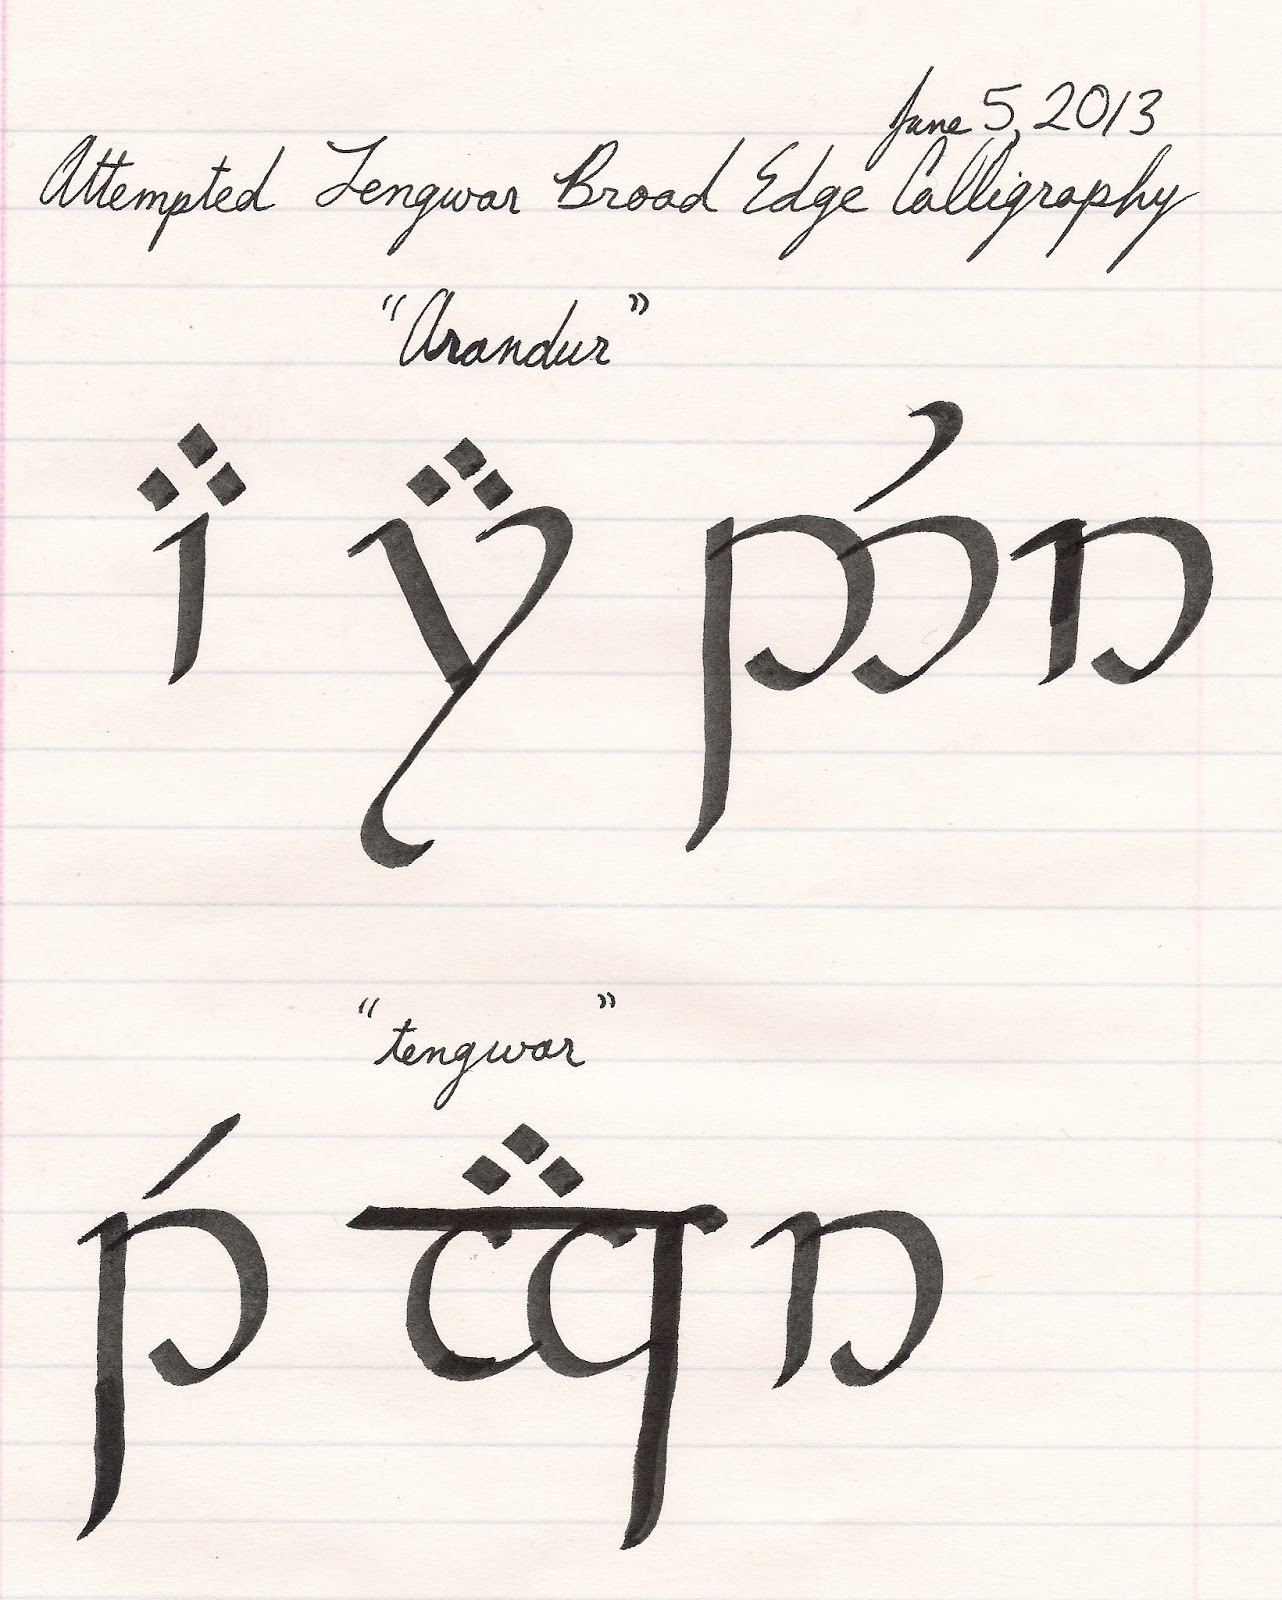 June 5, 2013
Attempted Tengwar Broad Edge Calligraphy
"Arandur"
"tengwar"